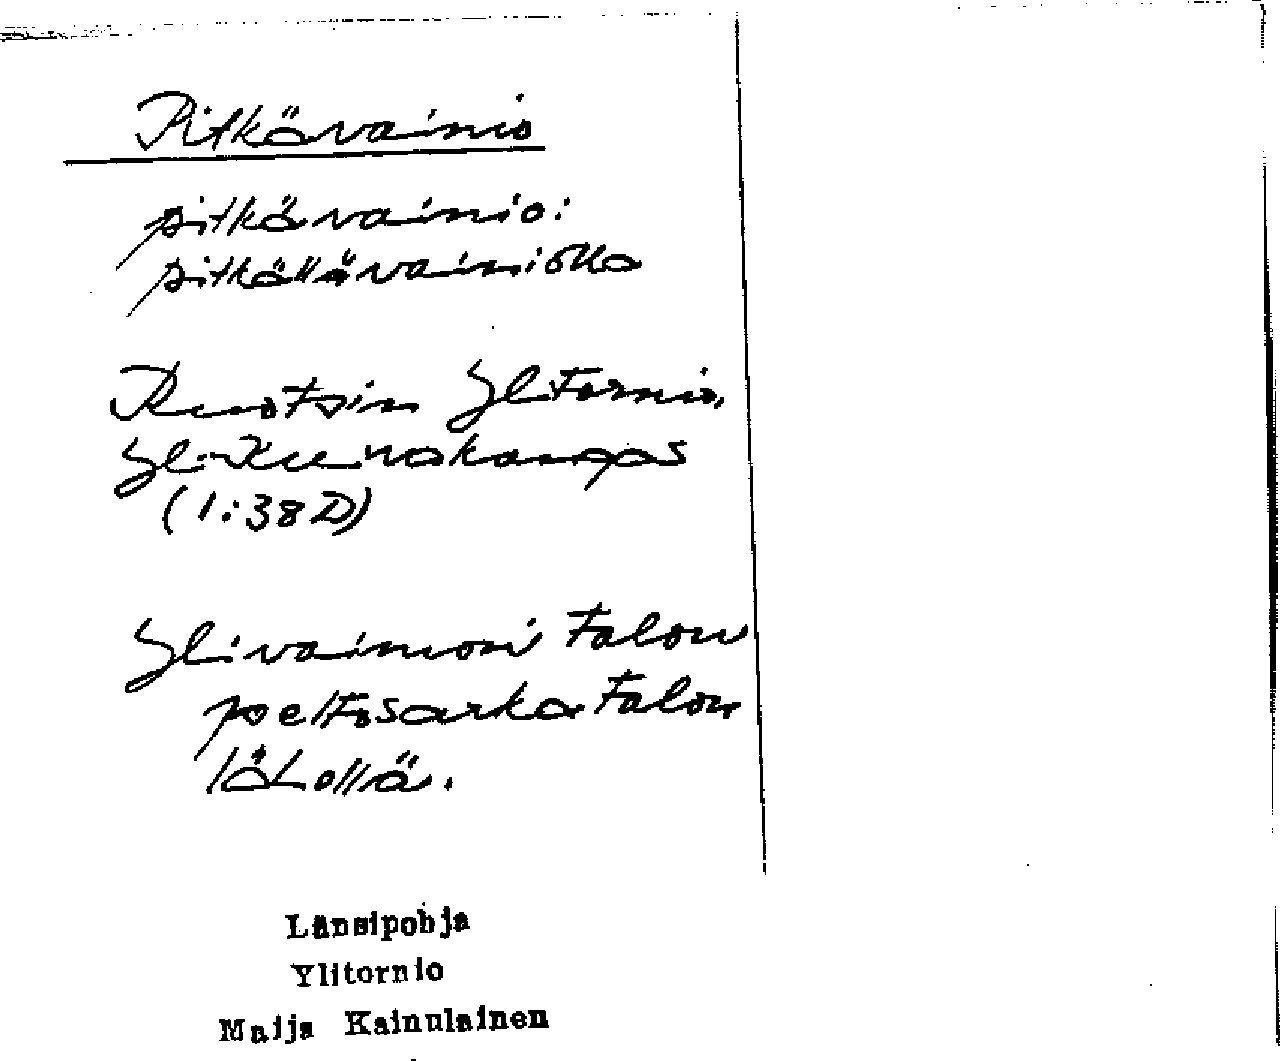 Pitkävainio
pitkävainio:
pitkälläväiniöllä
Ruotsin Ylitornio,
Yli-Kuivakangas
(1:38 D)
Ylivainion talon
peltosarka talon
lähellä.
Länsipohja
Ylitornio
Maija Kainulainen